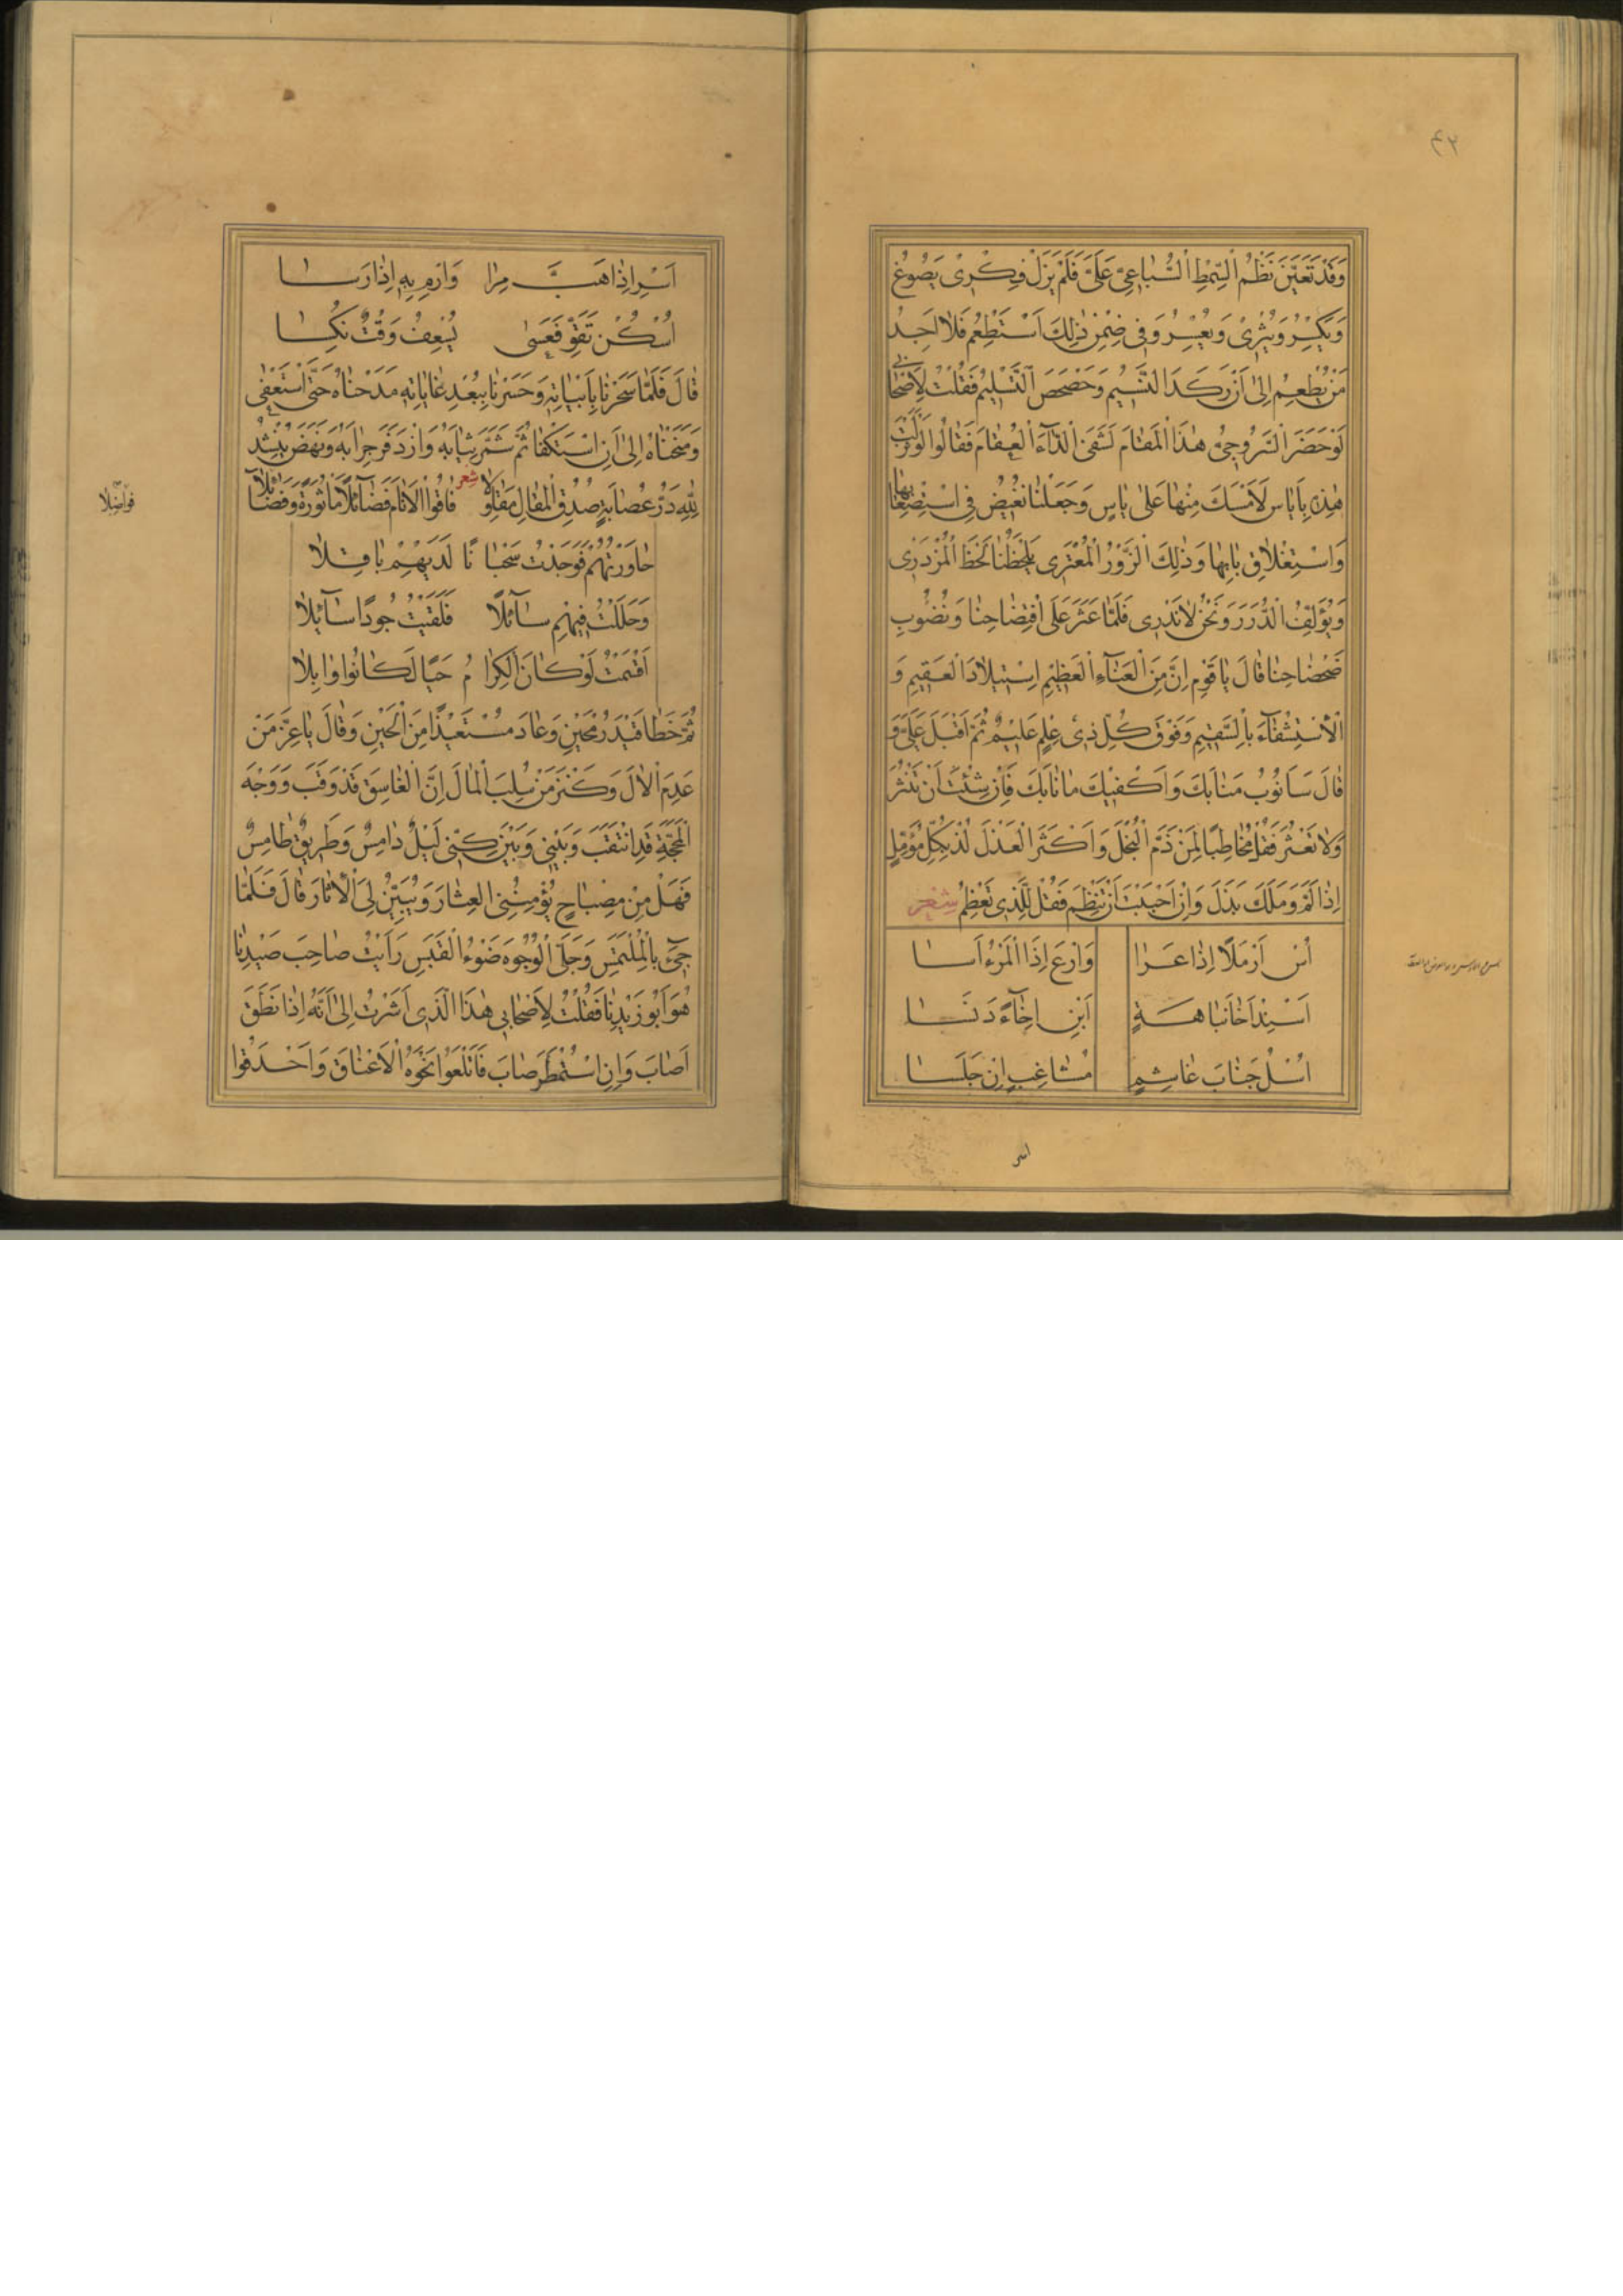 ۴۳
وَقَدْ تَعَيَّنَ نَظْمُ السِّمْطِ السُّبَاعِيِّ عَلَيَّ فَلَمْ يَزَلْ فِكْرِي يَصُوغُ
وَيَكْسِرُ وَيُثْرِي وَيُعْسِرُ وَفِي ضِمْنِ ذٰلِكَ اَسْتَطْعِمُ فَلَا اَجِدُ
مَنْ يُطْعِمُ اِلٰى اَنْ رَكَدَ النَّسِيمُ وَحَصْحَصَ التَّسْلِيمُ فَقُلْتُ لِاَصْحَابِي
لَوْ حَضَرَ السَّرُوجِيُّ هٰذَا الْمَقَامَ لَشَفَى الدَّاءَ الْعُقَامَ فَقَالُوا لَوْ نَزَلَتْ
هٰذِهِ بِاَيَاسٍ لَاَمْسَكَ مِنْهَا عَلٰى يَاسٍ وَجَعَلْنَا نُفِيضُ فِي اسْتِصْعَابِهَا
وَاسْتِغْلَاقِ بَابِهَا وَذٰلِكَ الزَّوْرُ الْمُعْتَرِي يَلْحَظُنَا لَحْظَ الْمُزْدَرِي
وَيُؤَلِّفُ الدُّرَرَ وَنَحْنُ لَا نَدْرِي فَلَمَّا عَثَرَ عَلَى افْتِضَاحِنَا وَنُضُوبِ
ضَحْضَاحِنَا قَالَ يَا قَوْمِ اِنَّ مِنَ الْعَنَاءِ الْعَظِيمِ اسْتِيلَادَ الْعَقِيمِ وَ
الْاِسْتِشْفَاءَ بِالسَّقِيمِ وَفَوْقَ كُلِّ ذِي عِلْمٍ عَلِيمٌ ثُمَّ اَقْبَلَ عَلَيَّ وَ
قَالَ سَاَنُوبُ مَنَابَكَ وَاَكْفِيكَ مَا نَابَكَ فَاِنْ شِئْتَ اَنْ تَنْثُرَ
وَلَا تَعْثُرَ فَقُلْ مُخَاطِبًا لِمَنْ ذَمَّ الْبُخْلَ وَاَكْثَرَ الْعَذْلَ لُذْ بِكُلِّ مُؤَمَّلٍ
اِذَا لَمَّ وَمَلَكَ بَذَلَ وَاِنْ اَحْبَبْتَ اَنْ تَنْظِمَ فَقُلْ لِلَّذِي تُعْظِمُ شِعْر
اُسْ اَرْمَلًا اِذَا عَرَا وَارْعَ اِذَا الْمَرْءُ اَسَا
اَسْنِدْ اَخَا نَبَاهَةٍ اَبِنْ اِخَاءً دَنَسَا
اُسْلُ جَنَابَ غَاشِمٍ مُشَاغِبٍ اِنْ جَلَسَا
اسر
اَسْرِ اِذَا هَبَّ مِرَا وَارْمِ بِهِ اِذَا رَسَا
اُسْكُنْ تَقَوَّ فَعَسٰى يُسْعِفُ وَقْتٌ نَكَسَا
قَالَ فَلَمَّا سَحَرَنَا بِاَبْيَاتِهِ وَحَسَرَنَا بِبُعْدِ غَايَاتِهِ مَدَحْنَاهُ حَتَّى اسْتَعْفٰى
وَمَنَحْنَاهُ اِلٰى اَنِ اسْتَكْفَا ثُمَّ شَمَّرَ ثِيَابَهُ وَازْدَفَرَ جِرَابَهُ وَنَهَضَ يُنْشِدُ
شعر
لِلّٰهِ دَرُّ عُصَابَةٍ صُدُقِ الْمَقَالِ مَقَاوِلَا فَاقُوا الْاَنَامَ فَضَائِلًا مَاْثُورَةً وَفَضَائِلَا
فواضلا
حَاوَرْتُهُمْ فَوَجَدْتُ سَحْبَانًا لَدَيْهِمْ بَاقِلَا
وَحَلَلْتُ فِيهِمْ سَائِلًا فَلَقِيتُ جُودًا سَائِلَا
اَقْسَمْتُ لَوْ كَانَ الْكِرَامُ حَيًا لَكَانُوا وَابِلَا
ثُمَّ خَطَا قِيدَ رُمْحَيْنِ وَعَادَ مُسْتَعِيذًا مِنَ الْحَيْنِ وَقَالَ يَا عِزَّ مَنْ
عَدِمَ الْاٰلَ وَكَنْزَ مَنْ سُلِبَ الْمَالَ اِنَّ الْغَاسِقَ قَدْ وَقَبَ وَوَجْهَ
الْمَحَجَّةِ قَدِ انْتَقَبَ وَبَيْنِي وَبَيْنَ كِنِّي لَيْلٌ دَامِسٌ وَطَرِيقٌ طَامِسٌ
فَهَلْ مِنْ مِصْبَاحٍ يُؤْمِنُنِي الْعِثَارَ وَيُبَيِّنُ لِيَ الْاٰثَارَ قَالَ فَلَمَّا
جِيءَ بِالْمُلْتَمَسِ وَجَلَّى الْوُجُوهَ ضَوْءُ الْقَبَسِ رَاَيْتُ صَاحِبَ صَيْدِنَا
هُوَ اَبُو زَيْدِنَا فَقُلْتُ لِاَصْحَابِي هٰذَا الَّذِي اَشَرْتُ اِلٰى اَنَّهُ اِذَا نَطَقَ
اَصَابَ وَاِنِ اسْتُمْطِرَ صَابَ فَاَتْلَعُوا نَحْوَهُ الْاَعْنَاقَ وَاَحْدَقُوا